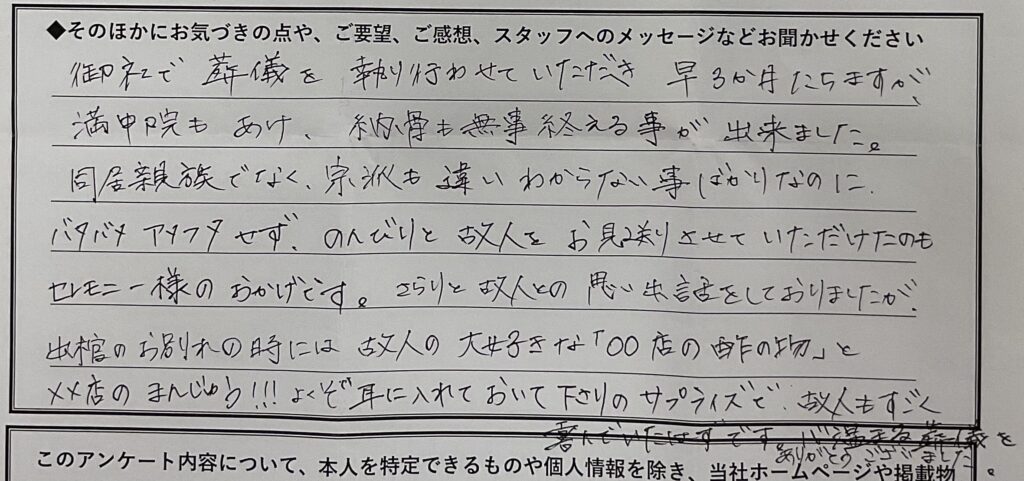 ◆そのほかにお気づきの点や、ご要望、ご感想、スタッフへのメッセージなどお聞かせください
御社で葬儀を執り行わせていただき 早3か月たちますが、
満中院もあけ、納骨も無事終える事が出来ました。
同居親族でなく、宗派も違いわからない事ばかりなのに、
バタバタアタフタせず、のんびりと故人をお見送りさせていただけたのも
セレモニー様のおかげです。さらりと故人との思い出話をしておりましたが、
出棺のお別れの時には故人の大好きな「〇〇店の酢の物」と
××店のまんじゅう!!!よくぞ耳に入れておいて下さりのサプライズで、故人もすごく
喜んでいたはずです。心温まる葬儀を
ありがとうございました。
このアンケート内容について、本人を特定できるものや個人情報を除き、当社ホームページや掲載物